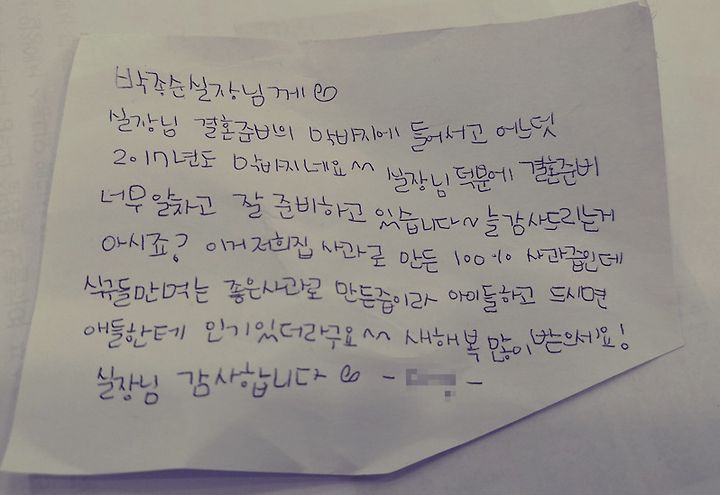 박종순실장님께♡
실장님 결혼준비의 막바지에 들어서고 어느덧
2017년도 막바지네요^^ 실장님덕분에 결혼준비
너무알차고 잘 준비하고 있습니다~늘감사드리는거
아시죠? 이거저희집 사과로 만든 100% 사과즙인데
식구들만먹는 좋은사과로 만든즙이라 아이들하고 드시면
애들한테 인기있더라구요^^ 새해복많이받으세요!
실장님 감사합니다 ♡ - -